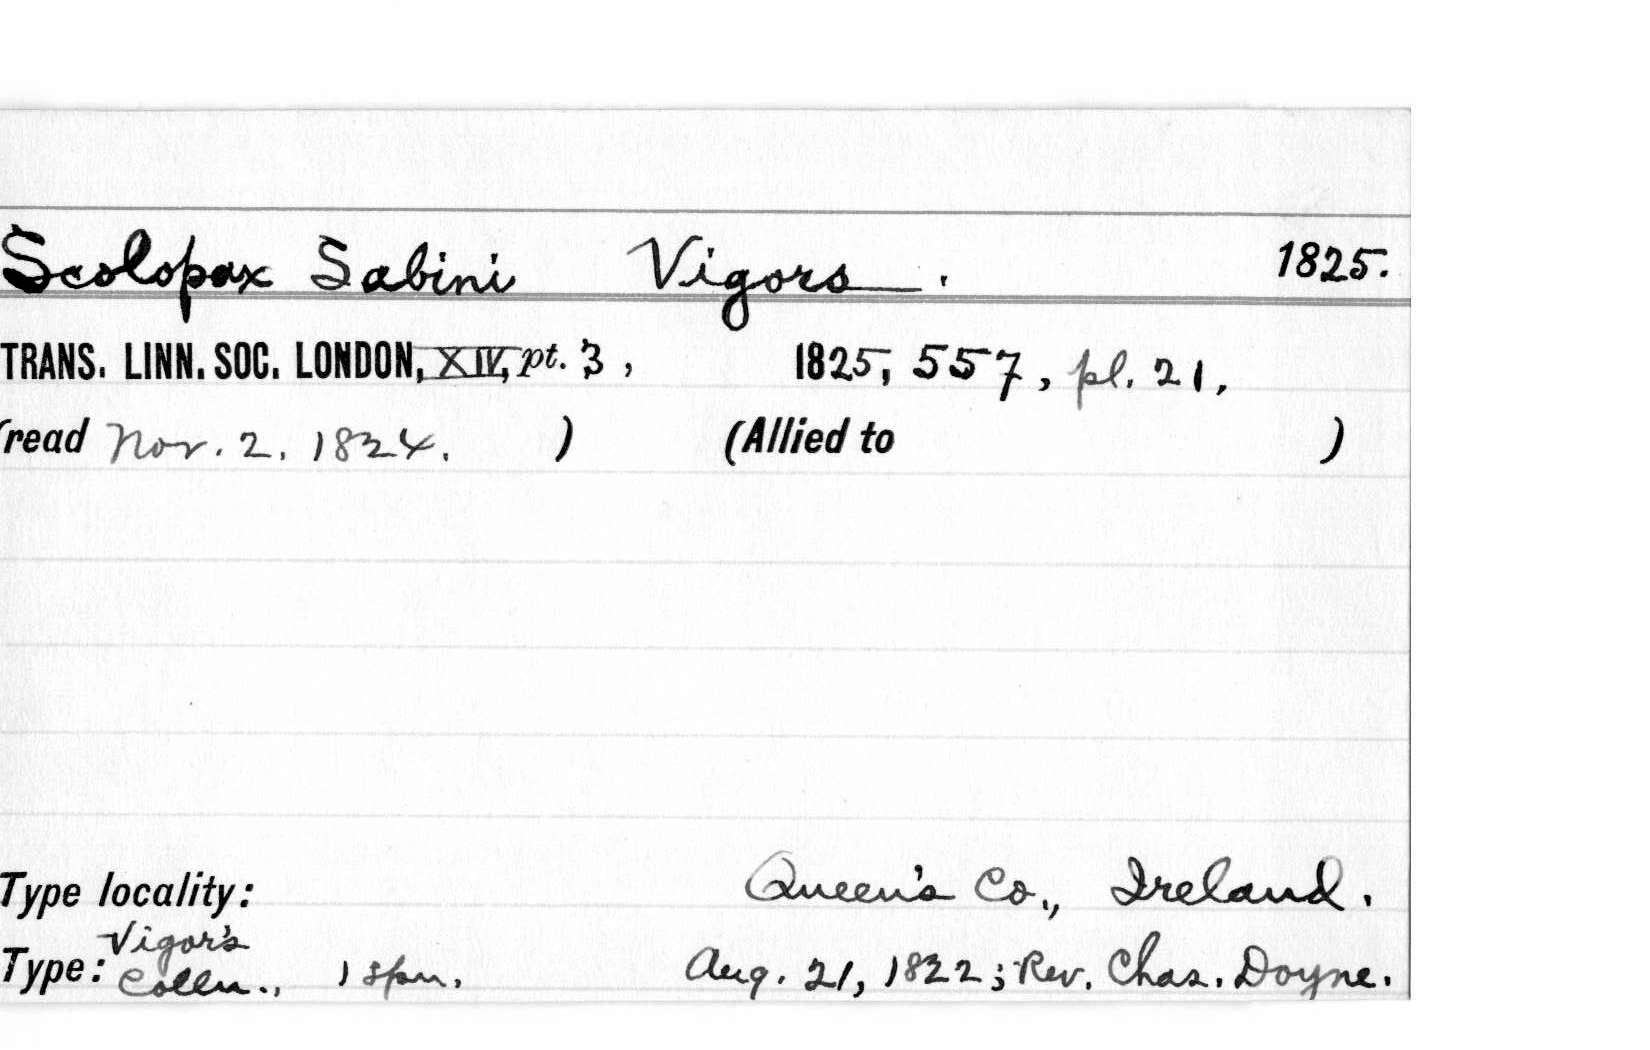 Scolopax Sabini Vigors. 1825.
TRANS. LINN. SOC. LONDON, XIV, pt. 3, 1825, 557, pl. 21,
(read Nov. 2, 1824. ) (Allied to )
Type locality: Queen's Co., Ireland.
Type: Vigor's Colln., 1 spm. Aug. 21, 1822; Rev. Chas. Doyne.